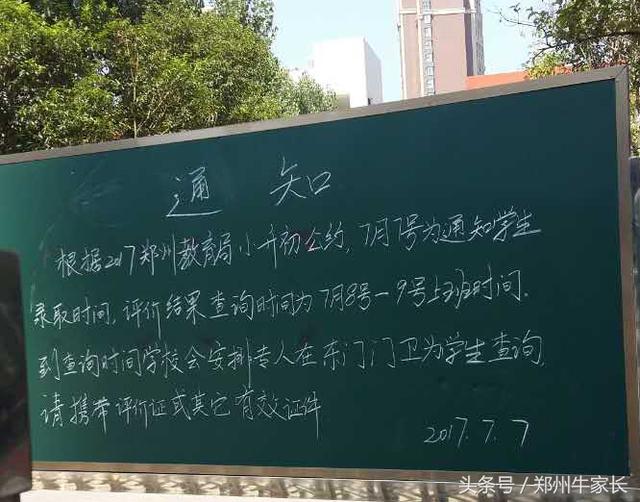 通知
根据2017郑州教育局小升初公约，7月7号为通知学生
录取时间，评价结果查询时间为7月8号-9号上班时间.
到查询时间学校会安排专人在东门门卫为学生查询，
请携带评价证或其它有效证件
2017.7.7
头条号/郑州牛家长